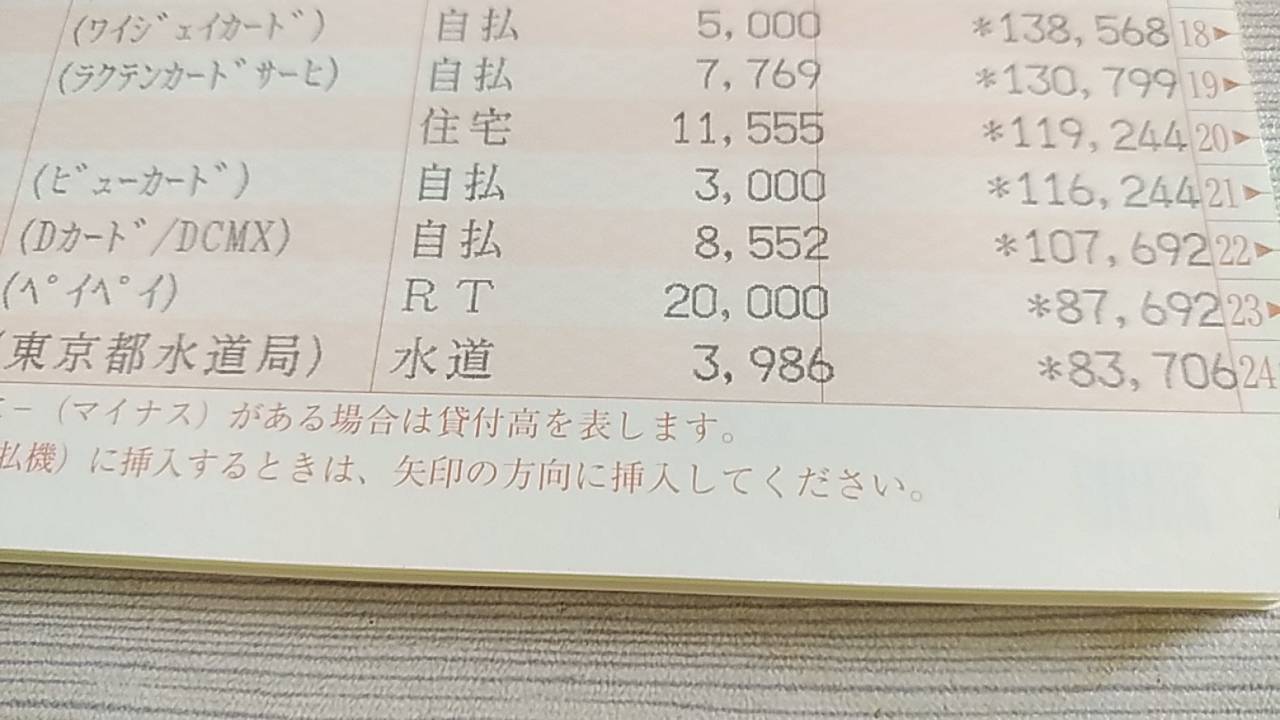 (ワイジェイカード) 自払 5,000 *138,568 18▶
(ラクテンカードサーヒ) 自払 7,769 *130,799 19▶
住宅 11,555 *119,244 20▶
(ビューカード) 自払 3,000 *116,244 21▶
(Dカード/DCMX) 自払 8,552 *107,692 22▶
(ペイペイ) RT 20,000 *87,692 23▶
(東京都水道局) 水道 3,986 *83,706 24
−(マイナス)がある場合は貸付高を表します。
払機)に挿入するときは、矢印の方向に挿入してください。